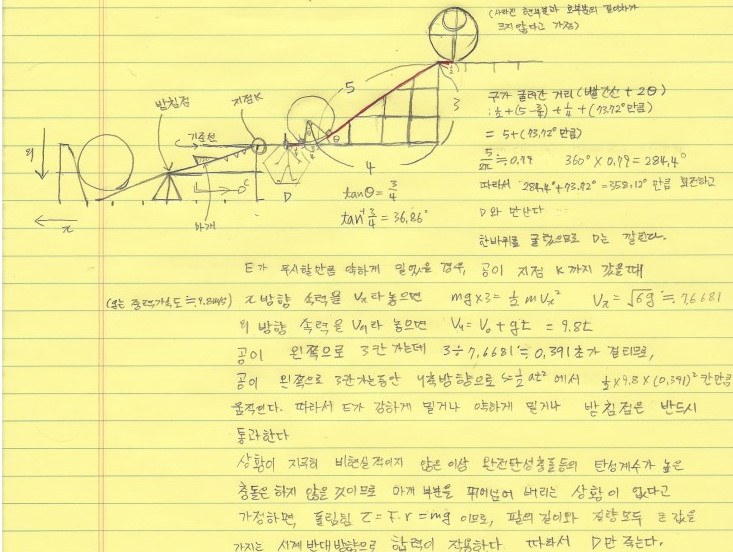 (사라진 호부분의 길이차가
크지 않다고 가정)
받침점
지점K
기준선
마개
5
3
4
θ
D
C
y
x
구가 굴러간 거리 (빨간선 + 2θ)
= 5+(73.72°만큼)
5/2π ≒ 0.79 360° × 0.79 = 284.4°
따라서 284.4°+73.72° = 358.12° 만큼 회전하고
D와 만난다
한바퀴를 굴렀으므로 D는 깔린다.
tanθ = 3/4
tan⁻¹ 3/4 = 36.86°
E가 무시할만큼 약하게 밀었을 경우, 공이 지점 K까지 갔을때
중력가속도≒9.8m/s)
x방향 속력을 Vx라 놓으면 mg×3 = ½mVx² Vx = √6g ≒ 7.6681
y방향 속력을 Vy라 놓으면 Vy = V₀+gt = 9.8t
공이 왼쪽으로 3칸 가는데 3÷7.6681 ≒ 0.391초가 걸리므로,
공이 왼쪽으로 3칸 가는동안 y축방향으로 S=½at² 에서 ½×9.8×(0.391)² 칸만큼
움직인다. 따라서 E가 강하게 밀거나 약하게 밀거나 받침점은 반드시
통과한다
상황이 지극히 비현실적이지 않은 이상 완전탄성충돌등의 탄성계수가 높은
충돌은 하지 않을 것이므로 마개 부분을 뛰어넘어 버리는 상황이 없다고
가정하면, 돌림힘 τ = F·r = mg 이므로, 팔의 길이와 질량 모두 큰 값을
가지는 시계 반대 방향으로 합력이 작용한다. 따라서 D만 죽는다.